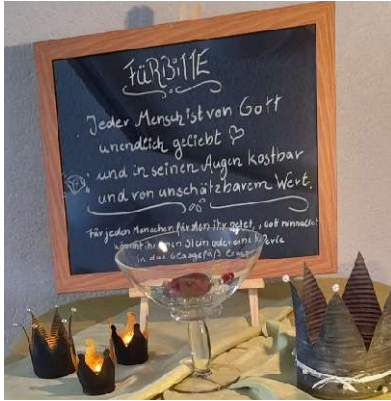 FÜRBITTE
Jeder Mensch ist von Gott
unendlich geliebt
und in seinen Augen kostbar
und von unschätzbarem Wert.
Für jeden Menschen für den ihr betet, Gott
könnt ihr einen Stein oder eine Perle
in das Glasgefäß